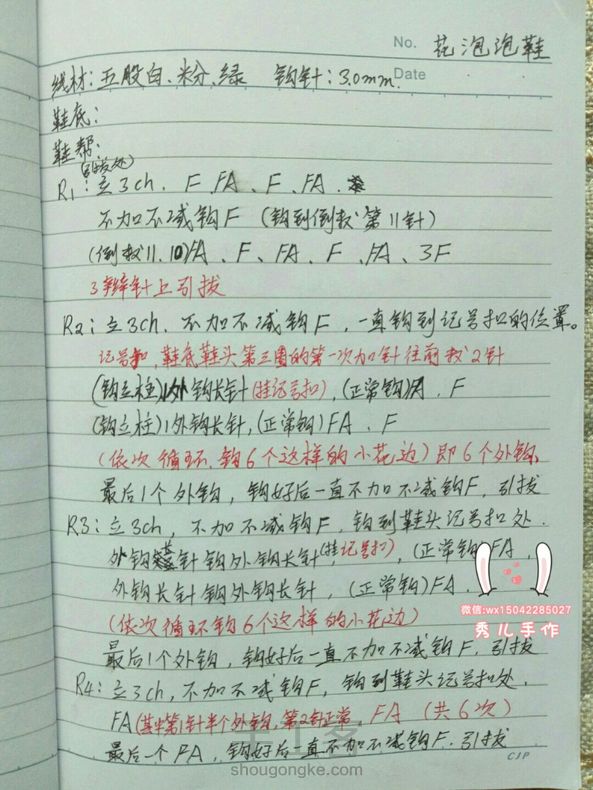 No. 花泡泡鞋
线材:五股白、米分、绿 钩针:3.0mm. Date
鞋底:
鞋帮:
(引拔处)
R1:立3ch、F、FA、F、FA、
不加不减钩F (钩到倒数第11针)
(倒数11.10)FA、F、FA、F、FA、3F
3辫针上引拔
R2:立3ch、不加不减钩F,一直钩到记号扣的位置。
记号扣,鞋底鞋头第三圈的第一次加针往前数2针
(钩立柱)1外钩长针(挂记号扣),(正常钩)FA、F
(钩立柱)1外钩长针,(正常钩)FA、F
(依次循环,钩6个这样的小花边)即6个外钩,
最后1个外钩,钩好后一直不加不减钩F、引拔
R3:立3ch,不加不减钩F,钩到鞋头记号扣处.
外钩长针钩外钩长针,(挂记号扣),(正常钩)FA、
外钩长针钩外钩长针,(正常钩)FA、
(依次循环钩6个这样的小花边)
最后1个外钩,钩好后一直不加不减钩F、引拔
R4:立3ch,不加不减钩F,钩到鞋头记号扣处.
FA(其中第1针半个外钩,第2针正常,FA (共6次)
最后一个FA,钩好后一直不加不减钩F.引拔
微信:wx15042285027
秀儿手作
shougongke.com
CJP